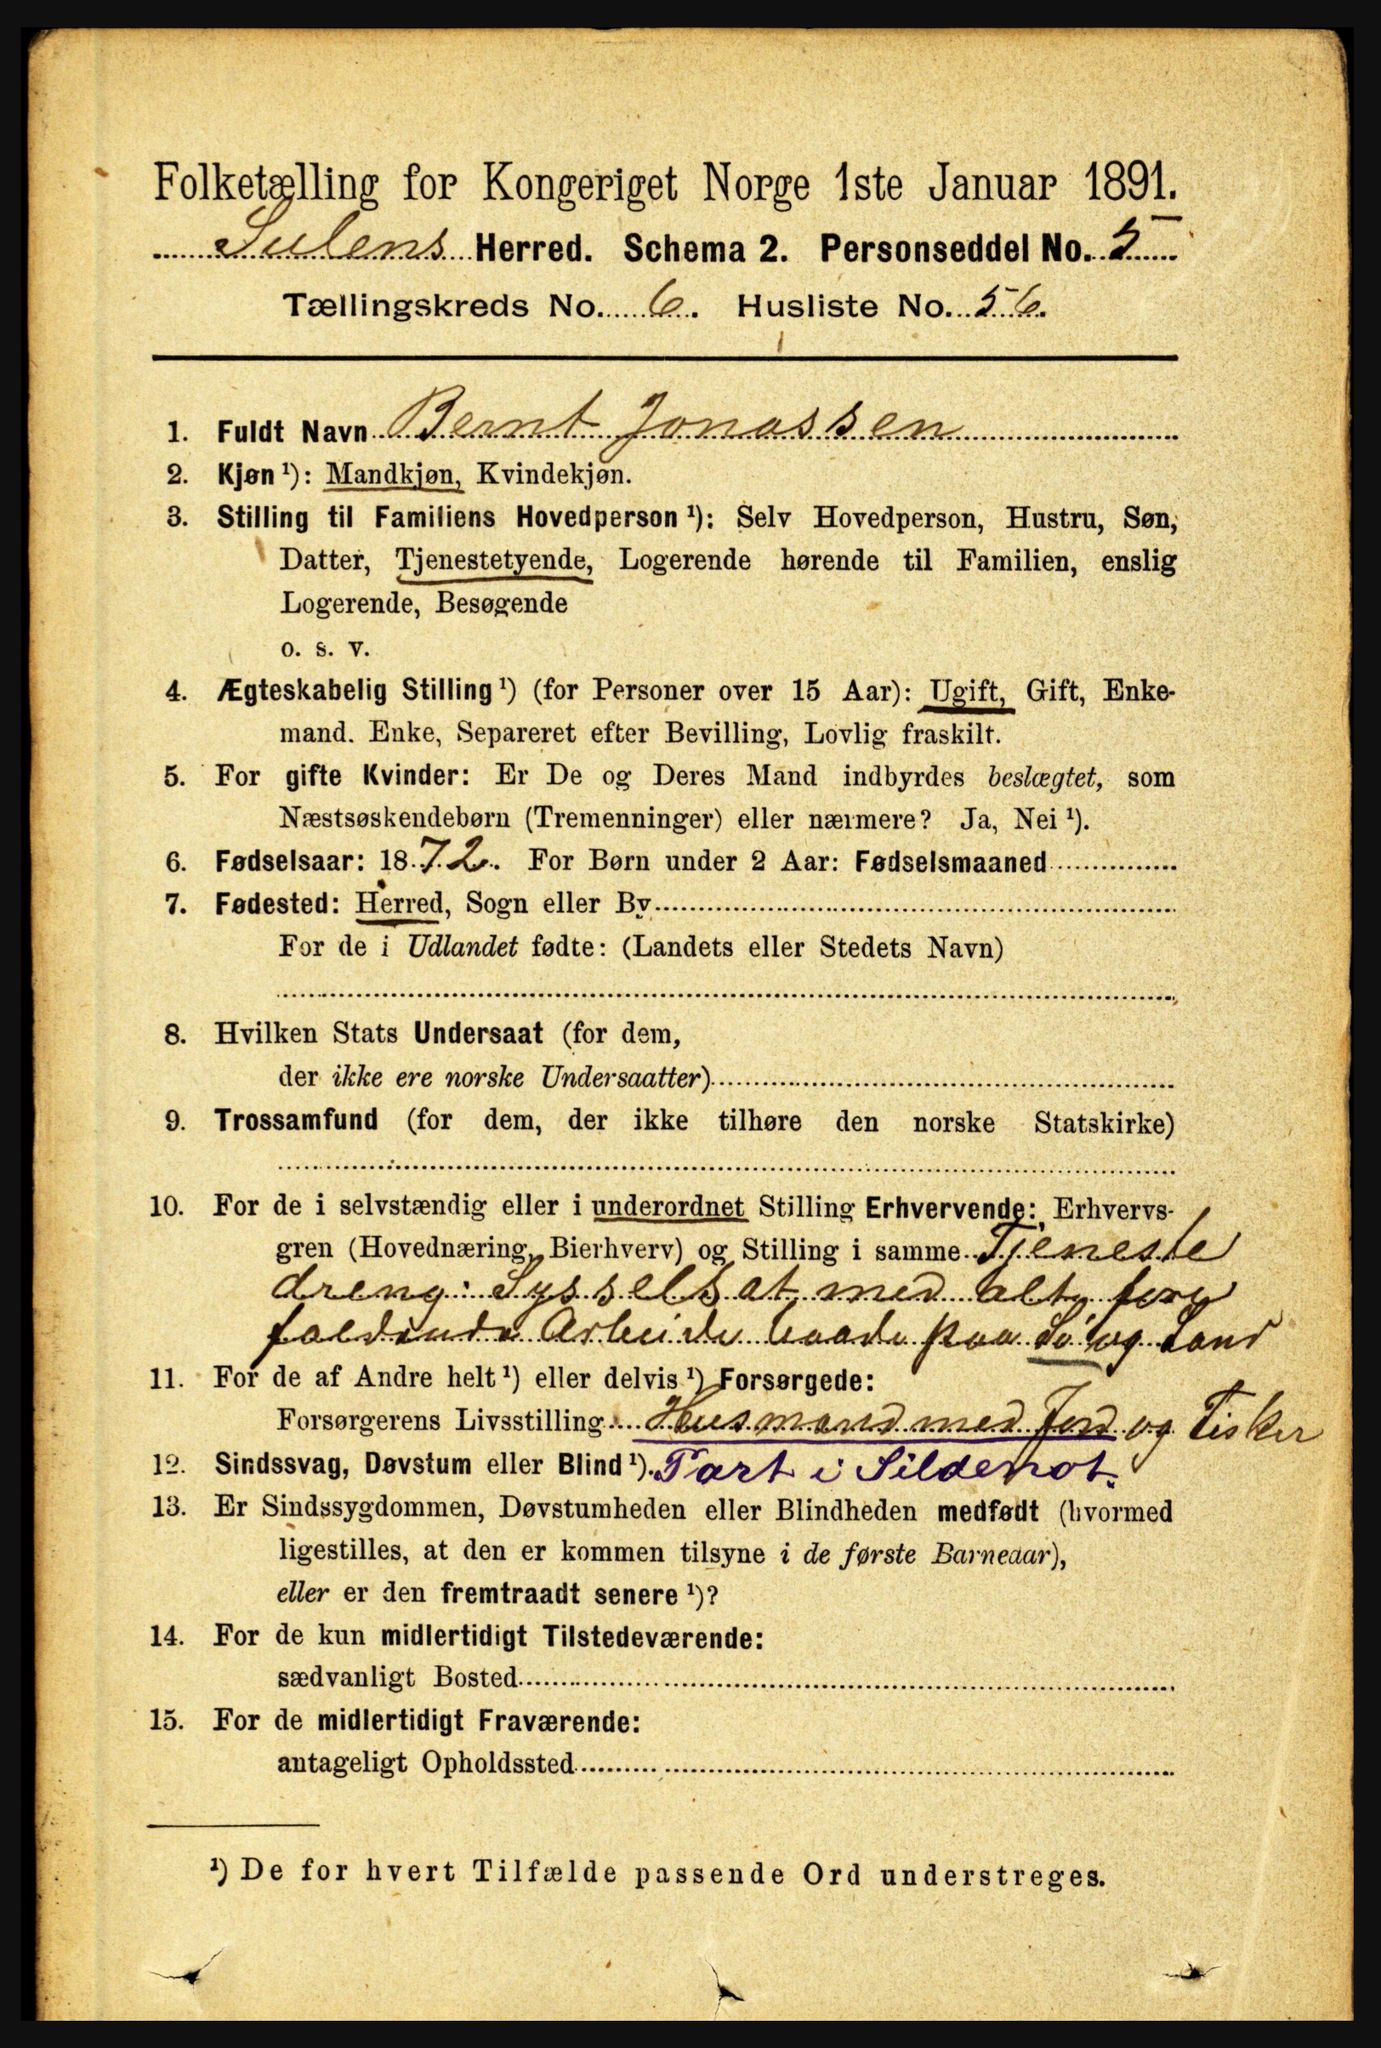 Folketælling for Kongeriget Norge 1ste Januar 1891.
Sulens Herred. Schema 2. Personseddel No. 5
Tællingskreds No. 6. Husliste No. 56.
1. Fuldt Navn Bernt Jonassen
2. Kjøn ¹): Mandkjøn, Kvindekjøn.
3. Stilling til Familiens Hovedperson ¹): Selv Hovedperson, Hustru, Søn,
Datter, Tjenestetyende, Logerende hørende til Familien, enslig
Logerende, Besøgende
o. s. v.
4. Ægteskabelig Stilling ¹) (for Personer over 15 Aar): Ugift, Gift, Enke-
mand. Enke, Separeret efter Bevilling, Lovlig fraskilt.
5. For gifte Kvinder: Er De og Deres Mand indbyrdes beslægtet, som
Næstsøskendebørn (Tremenninger) eller nærmere? Ja, Nei ¹).
6. Fødselsaar: 1872. For Børn under 2 Aar: Fødselsmaaned
7. Fødested: Herred, Sogn eller By
For de i Udlandet fødte: (Landets eller Stedets Navn)
8. Hvilken Stats Undersaat (for dem,
der ikke ere norske Undersaatter)
9. Trossamfund (for dem, der ikke tilhøre den norske Statskirke)
10. For de i selvstændig eller i underordnet Stilling Erhvervende: Erhvervs-
gren (Hovednæring, Bierhverv) og Stilling i samme Tjeneste
dreng: Sysselsat med alt fore
faldende Arbeide baade paa Sø og Land
11. For de af Andre helt ¹) eller delvis ¹) Forsørgede:
Forsørgerens Livsstilling Husmand med Jord og Fisker
12. Sindssvag, Døvstum eller Blind ¹). Part i Sildenot.
13. Er Sindssygdommen, Døvstumheden eller Blindheden medfødt (hvormed
ligestilles, at den er kommen tilsyne i de første Barneaar),
eller er den fremtraadt senere ¹)?
14. For de kun midlertidigt Tilstedeværende:
sædvanligt Bosted
15. For de midlertidigt Fraværende:
antageligt Opholdssted
¹) De for hvert Tilfælde passende Ord understreges.